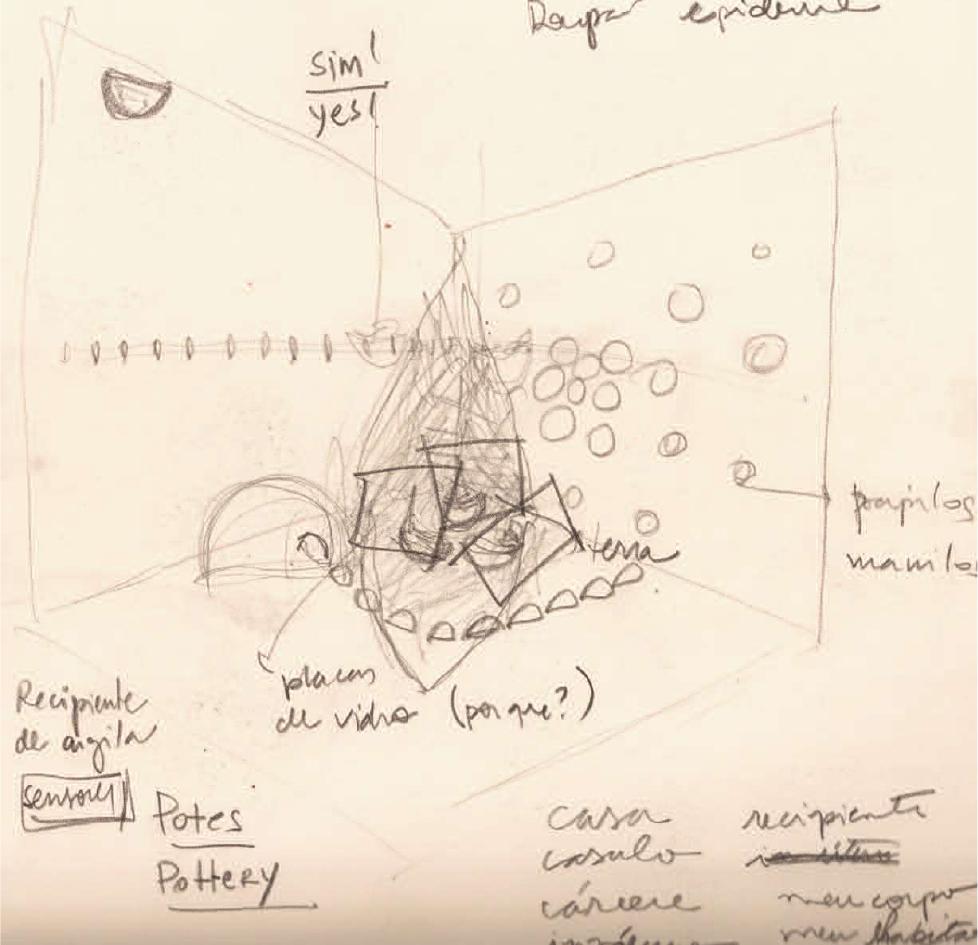 epiderme
sim!
yes!
papilos
mamilos
terra
placas
de vidro (porque?)
Recipiente
de argila
sensores
Potes
Pottery
casa recipiente
casulo
cárcere meu corpo
meu habita